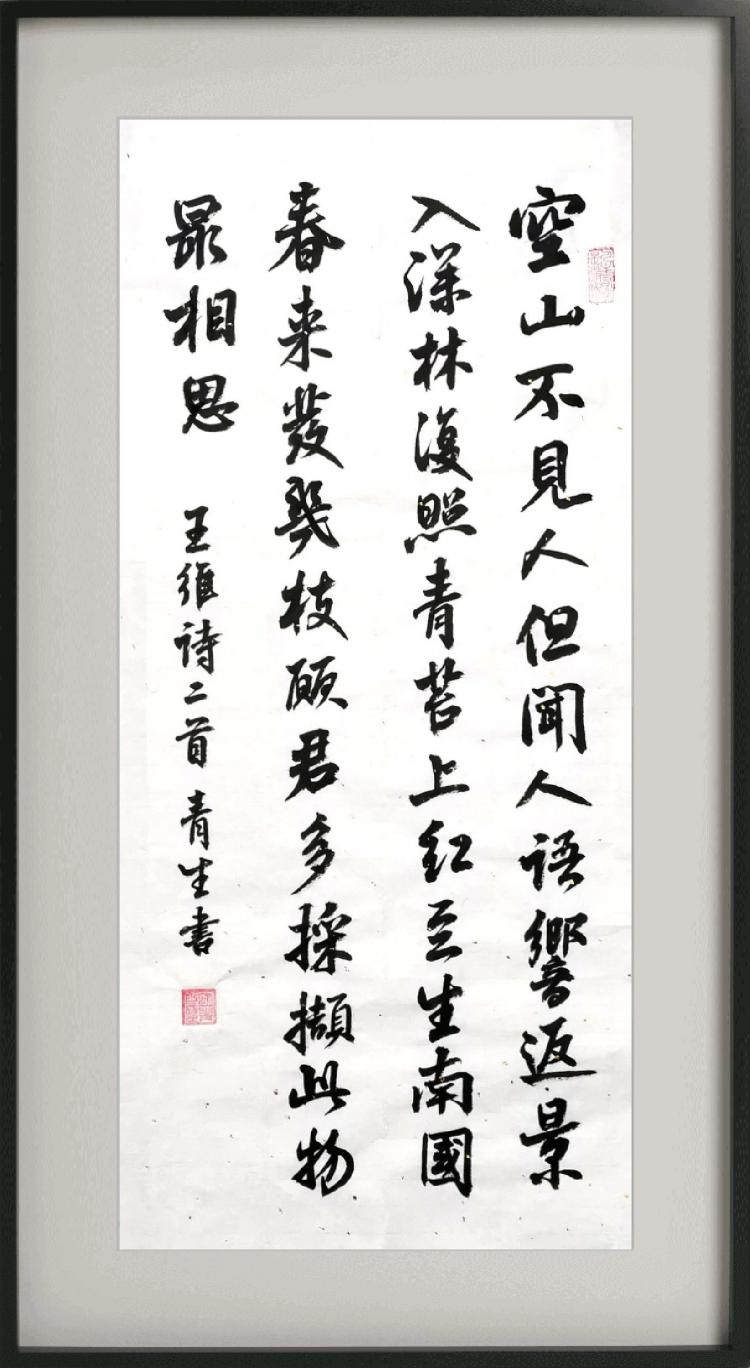 空山不見人但聞人語響返景
入深林復照青苔上紅豆生南國
春來發幾枝願君多採擷此物
最相思
王維诗二首 青生书